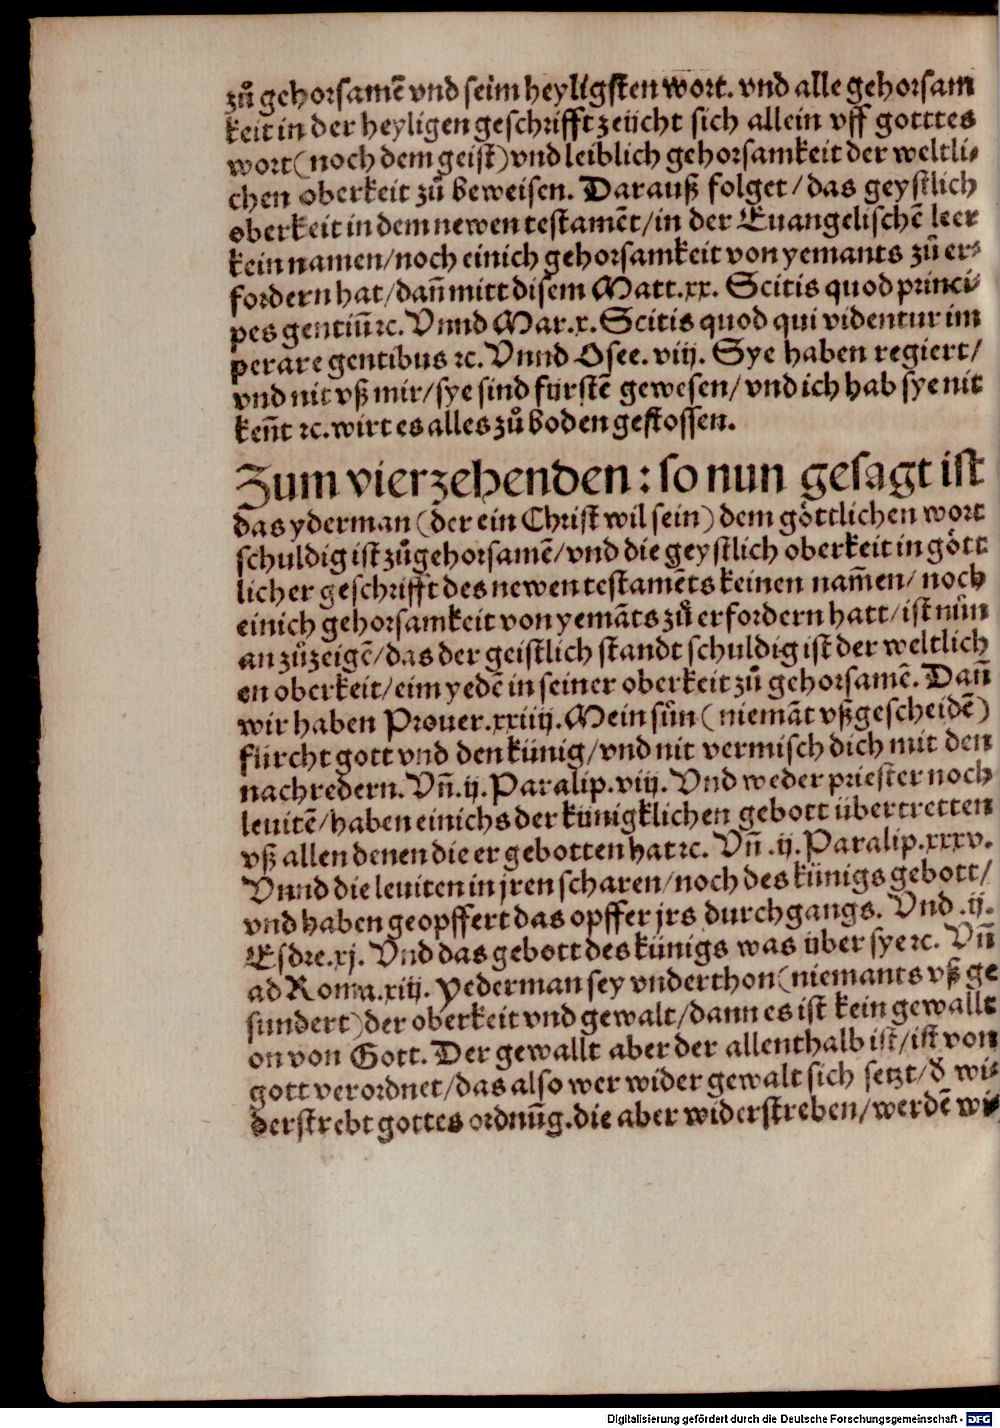 zů gehorsamē vnd seim heyligsten wort. vnd alle gehorsam
keit in der heyligen geschrifft zeücht sich allein vff gotttes
wort (noch dem geist) vnd leiblich gehorsamkeit der weltli-
chen oberkeit zů beweisen. Darauß folget / das geystlich
oberkeit in dem newen testamēt / in der Euangelischē leer
kein namen / noch einich gehorsamkeit von yemants zů er-
fordern hat / dañ mitt disem Matt.xx. Scitis quod princi-
pes gentiū ꝛc. Vnnd Mar.x. Scitis quod qui videntur im
perare gentibus ꝛc. Vnnd Osee. viij. Sye haben regiert /
vnd nit vß mir / sye sind fürstē gewesen / vnd ich hab sye nit
keñt ꝛc. wirt es alles zů boden gestossen.
Zum vierzehenden: so nun gesagt ist
das yderman (der ein Christ wil sein) dem göttlichen wort
schuldig ist zůgehorsamē / vnd die geystlich oberkeit in gött
licher geschrifft des newen testamēts keinen nam̄en / noch
einich gehorsamkeit von yemāts zů erfordern hatt / ist nůn
an zůzeigē / das der geistlich standt schuldig ist der weltlich
en oberkeit / eim yedē in seiner oberkeit zů gehorsamē. Dañ
wir haben Prouer.xxiiij. Mein sůn (niemāt vßgescheidē)
fürcht gott vnd den künig / vnd nit vermisch dich mit den
nachredern. Vñ.ij. Paralip.viij. Vnd weder priester noch
leuitē / haben einichs der künigklichen gebott übertretten
vß allen denen die er gebotten hat ꝛc. Vñ .ij. Paralip.xxxv.
Vnnd die leuiten in jren scharen / noch des künigs gebott /
vnd haben geopffert das opffer jrs durchgangs. Vnd .ij.
Esdre.xj. Vnd das gebott des künigs was über sye ꝛc. Vñ
ad Roma.xiij. Yederman sey vnderthon (niemants vß ge
sundert) der oberkeit vnd gewalt / dann es ist kein gewallt
on von Gott. Der gewallt aber der allenthalb ist / ist von
gott verordnet / das also wer wider gewalt sich setzt / đ wi-
derstrebt gottes ordnūg. die aber widerstreben / werdē wi-
Digitalisierung gefördert durch die Deutsche Forschungsgemeinschaft - DFG